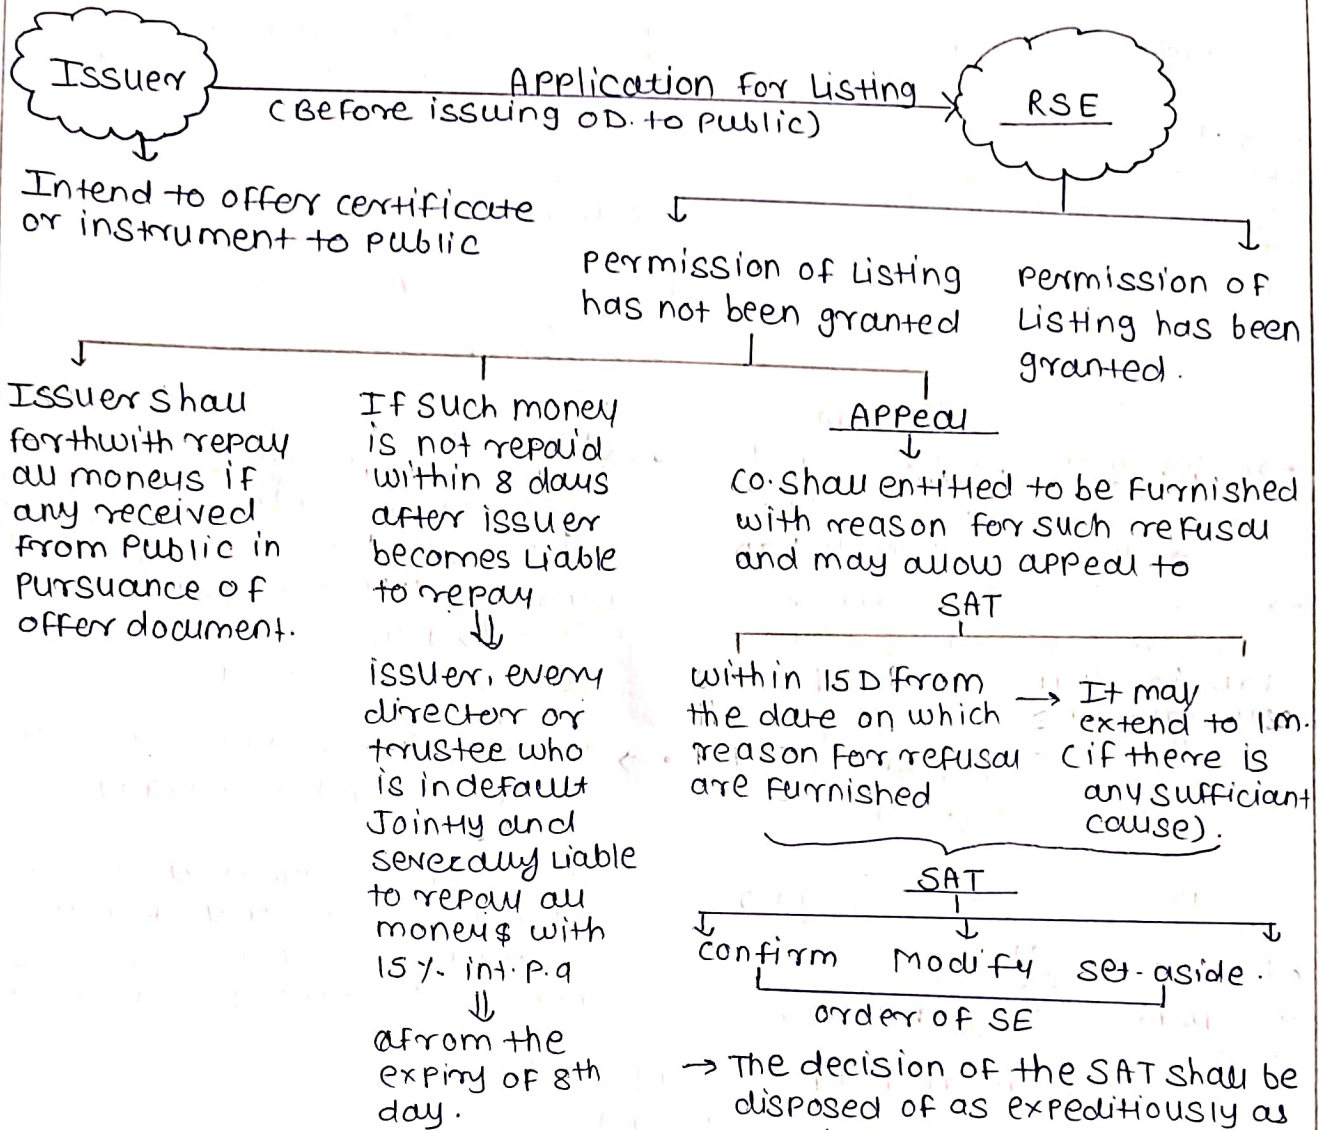 Issuer
Application for Listing
(Before issuing OD. to public)
RSE
Intend to offer certificate
or instrument to public
permission of Listing
has not been granted
permission of
Listing has been
granted.
Issuer shall
forthwith repay
all moneys if
any received
from Public in
pursuance of
offer document.
If such money
is not repaid
within 8 days
after issuer
becomes liable
to repay
issuer, every
director or
trustee who
is in default
Jointly and
severally liable
to repay all
money$ with
15 %. int. p.a
afrom the
expiry of 8th
day.
Appeal
co. shall entitled to be furnished
with reason for such refusal
and may allow appeal to
SAT
within 15 D from
the date on which
reason for refusal
are furnished
→ It may
extend to 1.m.
(if there is
any sufficiant
cause).
SAT
confirm Modify set-aside.
order of SE
→ The decision of the SAT shall be
disposed of as expeditiously as